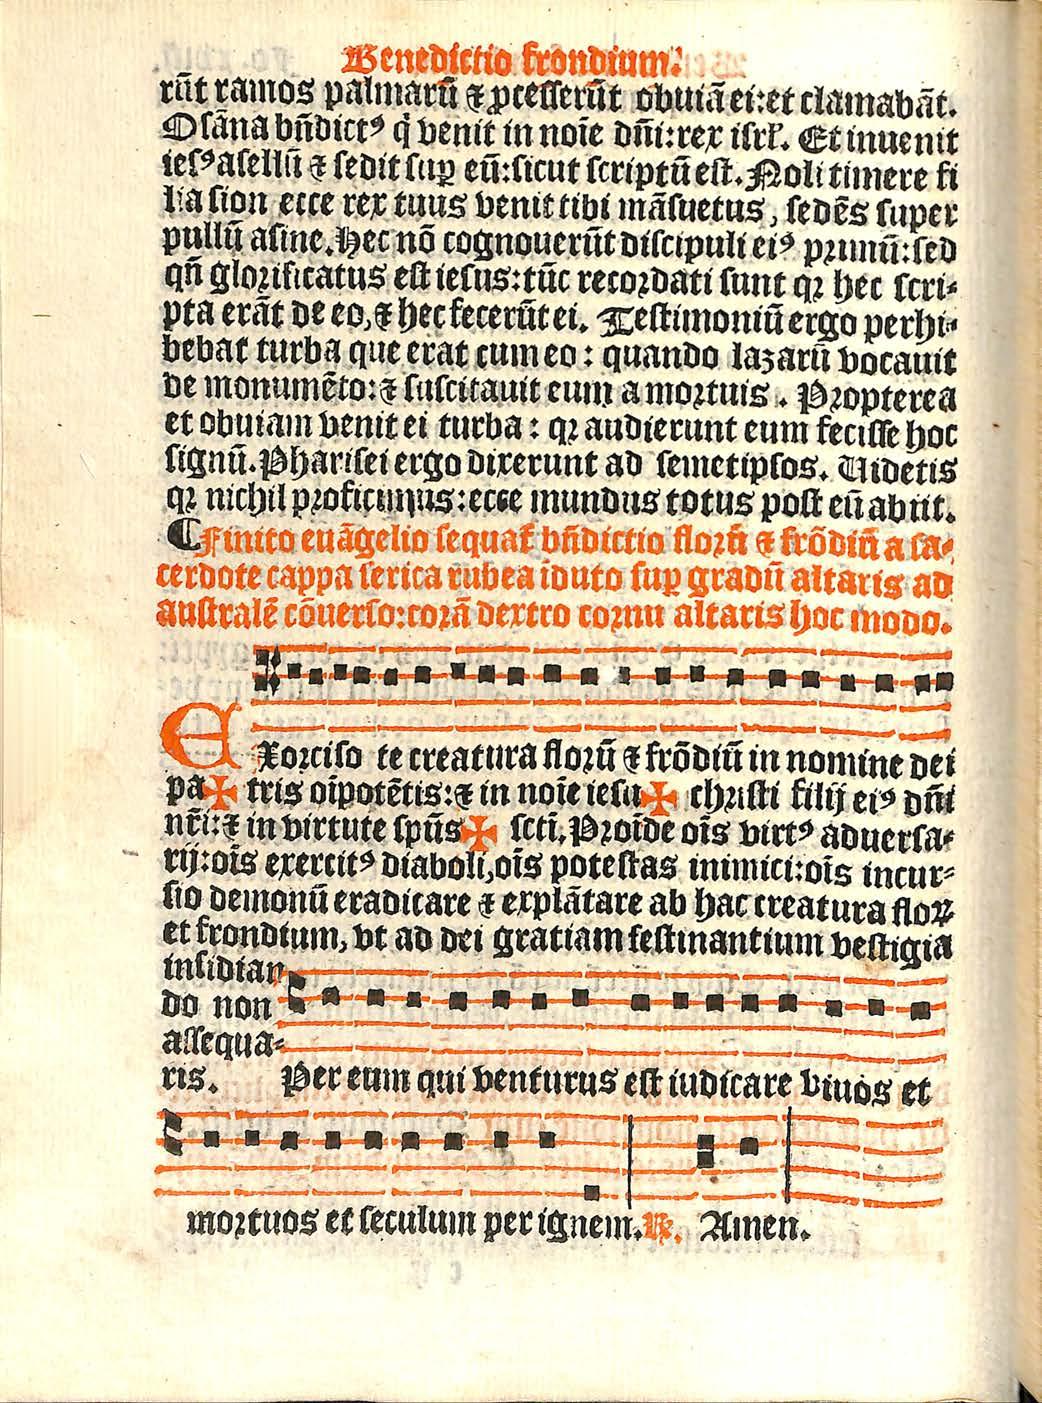 Benedictio frondium.
rūt ramos palmarū ⁊ ꝓcesserūt obuiā ei:et clamabāt.
Osāna bn̄dictꝰ q̇ venit in noīe dn̄i:rex isrl̄. Et inuenit
iesꝰ asellū ⁊ sedit suꝑ eū:sicut scriptū est. Noli timere fi
lia sion ecce rex tuus venit tibi māsuetus, sedēs super
pullū asine. Hec nō cognouerūt discipuli eiꝰ primū:sed
qn̄ glorificatus est iesus:tūc recordati sunt qꝛ hec scri-
pta erāt de eo, ⁊ hec fecerūt ei. Testimoniū ergo perhi-
bebat turba que erat cum eo: quando lazarū vocauit
de monumēto: ⁊ suscitauit eum a mortuis. Propterea
et obuiam venit ei turba: qꝛ audierunt eum fecisse hoc
signū. Pharisei ergo dixerunt ad semetipsos. Uidetis
qꝛ nichil proficimus: ecce mundus totus post eū abiit.
¶ Finito euāgelio sequat̄ bn̄dictio florū ⁊ frōdiū a sa-
cerdote cappa serica rubea īduto suꝑ gradū altaris ad
australē cōuerso: corā dextro cornu altaris hoc modo.
EXorciso te creatura florū ⁊ frōdiū in nomine dei
pa ✠ tris oīpotētis: ⁊ in noīe iesu ✠ christi filij eiꝰ dn̄i
nr̄i: ⁊ in virtute spūs ✠ sctī. Proīde oīs virtꝰ aduersa-
rij: oīs exercitꝰ diaboli, oīs potestas inimici: oīs incur-
sio demonū eradicare ⁊ explātare ab hac creatura floꝝ
et frondium, vt ad dei gratiam festinantium vestigia
insidian
do non
assequa-
ris. Per eum qui venturus est iudicare viuos et
mortuos et seculum per ignem. ℟. Amen.